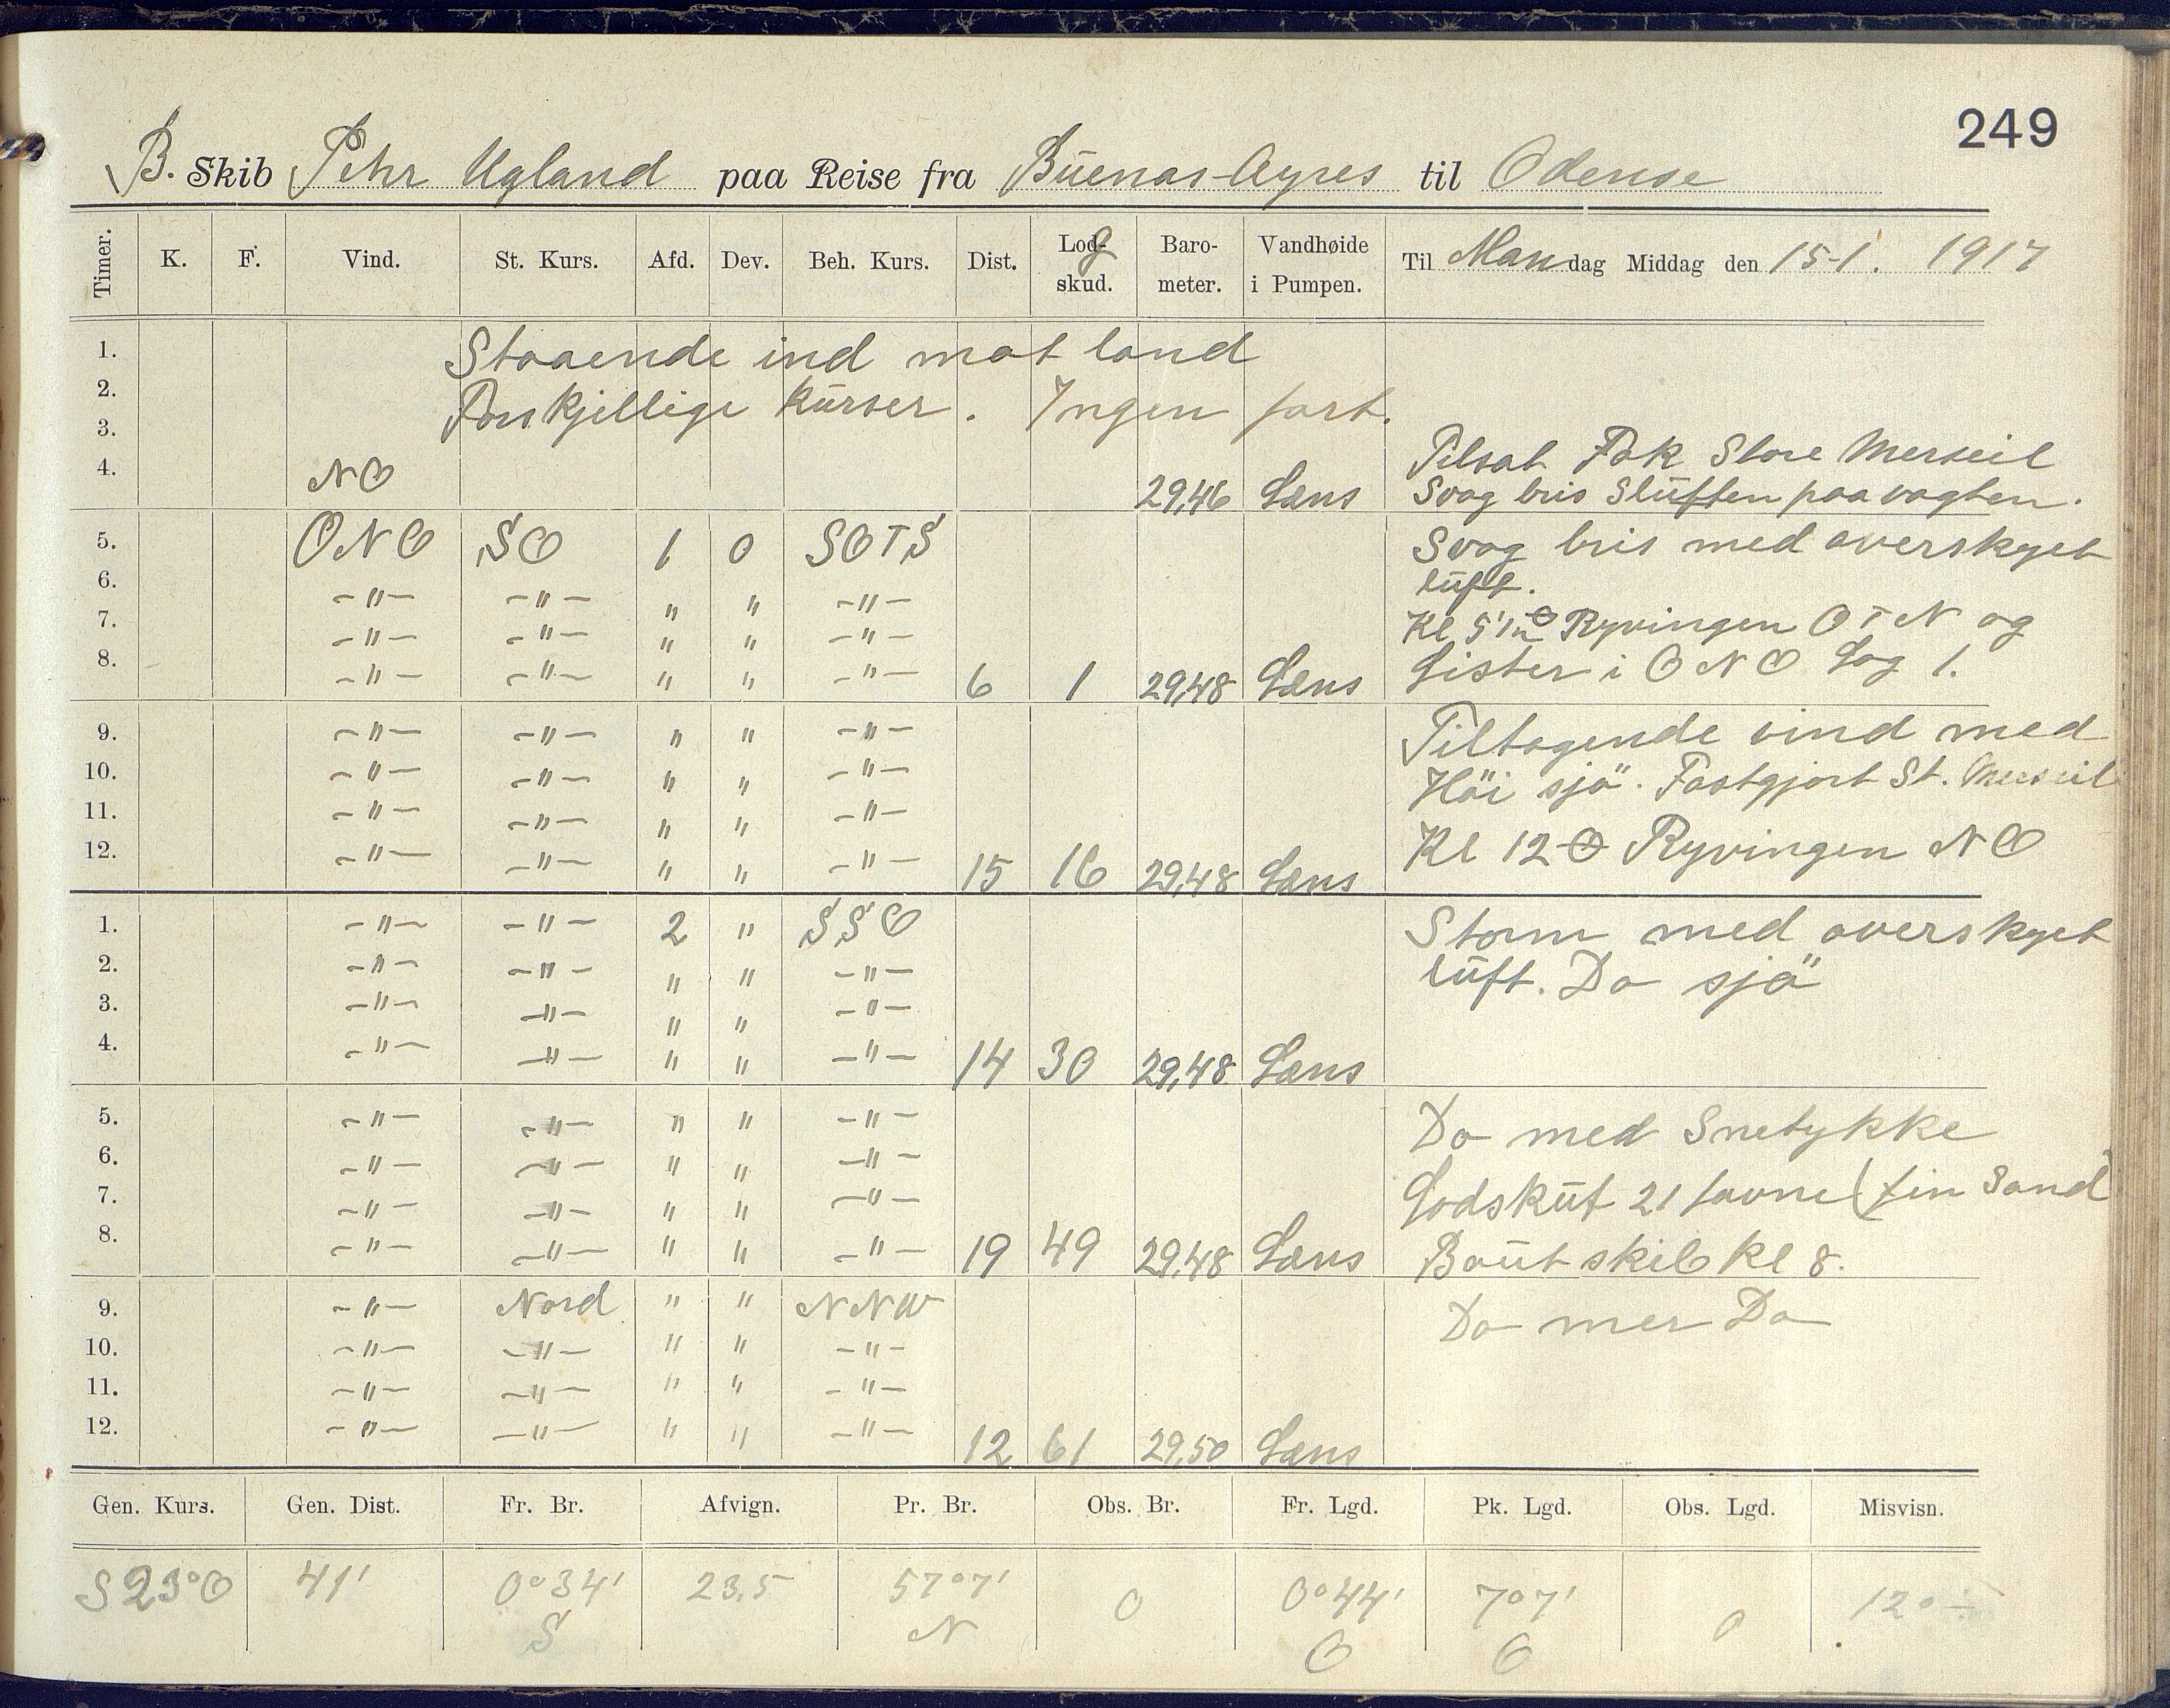 249
B. Skib Pehr Ugland paa Reise fra Buenas-Ayres til Odense
Timer. K. F. Vind. St. Kurs. Afd. Dev. Beh. Kurs. Dist. Log- skud. Baro- meter. Vandhøide i Pumpen. Til Mandag Middag den 15-1. 1917
1. Staaende ind mot land
2. Forskjellige Kurser. Ingen fart.
3. Tilsat Fok Store Merseil
4. NO 29,46 Læns Svag bris Sluften paa vagten.
5. ONO SO 1 0 SOTS Svag bris med overskyet
6. -"- -"- " " -"- luft.
7. -"- -"- " " -"- Kl 5 Ryvingen OTN og
8. -"- -"- " " -"- 6 1 29,48 Læns Lister i ONO Log 1.
9. -"- -"- " " -"- Tiltagende vind med
10. -"- -"- " " -"- Höi sjö. Fastgjort St. Merseil
11. -"- -"- " " -"-
12. -"- -"- " " -"- 15 16 29,48 Læns Kl 12 Ryvingen NO
1. -"- -"- 2 " SSO Storm med overskyet
2. -"- -"- " " -"- luft. Do sjö
3. -"- -"- " " -"-
4. -"- -"- " " -"- 14 30 29,48 Læns
5. -"- -"- " " -"- Do med Snetykke
6. -"- -"- " " -"-
7. -"- -"- " " -"- Lodskut 21 favne (fin Sand)
8. -"- -"- " " -"- 19 49 29,48 Læns Baut skib Kl 8.
9. -"- Nord " " NNW Do mer Do
10. -"- -"- " " -"-
11. -"- -"- " " -"-
12. -"- -"- " " -"- 12 61 29,50 Læns
Gen. Kurs. Gen. Dist. Fr. Br. Afvign. Pr. Br. Obs. Br. Fr. Lgd. Pk. Lgd. Obs. Lgd. Misvisn.
S 23° O 41' 0°34' 23.5 57°7' 0 0°44' 7°7' 0 12° ÷
S N O O